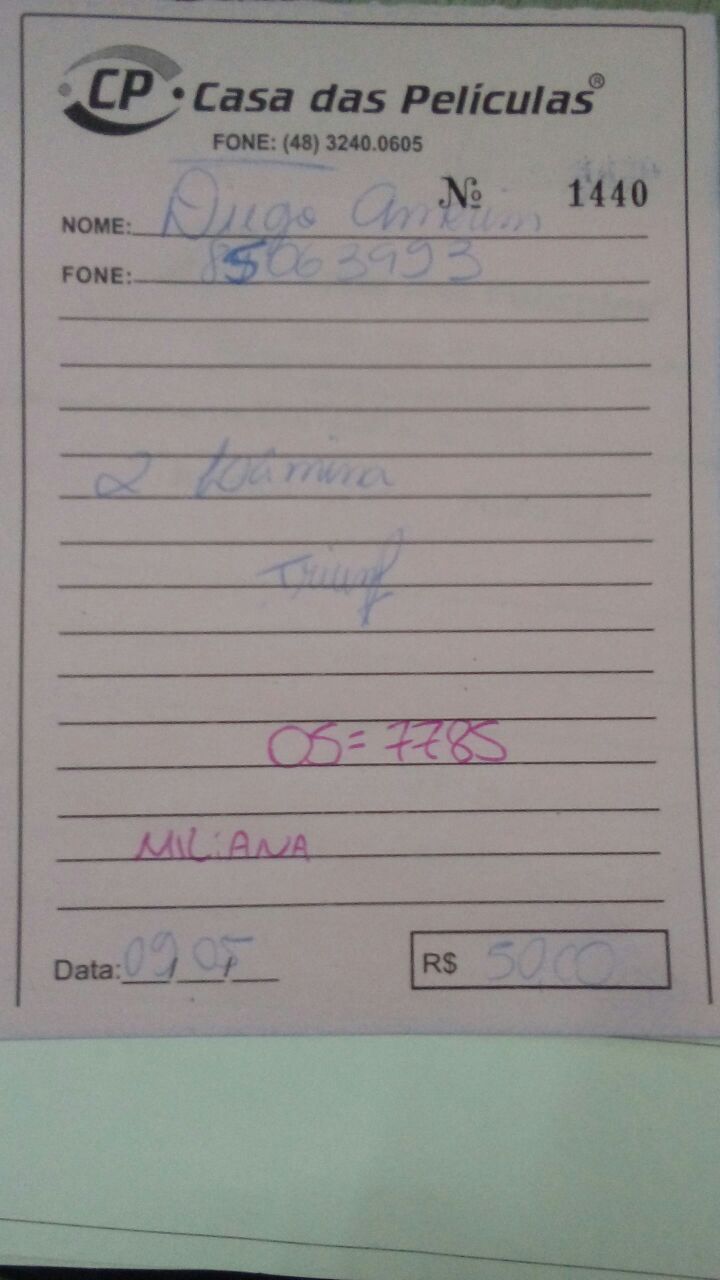 CP Casa das Películas®
FONE: (48) 3240.0605
Nº 1440
NOME: Diego Amorim
FONE: 85063993
2 Lâmina
Triunf
OS= 7785
MILIANA
Data: 09/05/
R$ 50,00